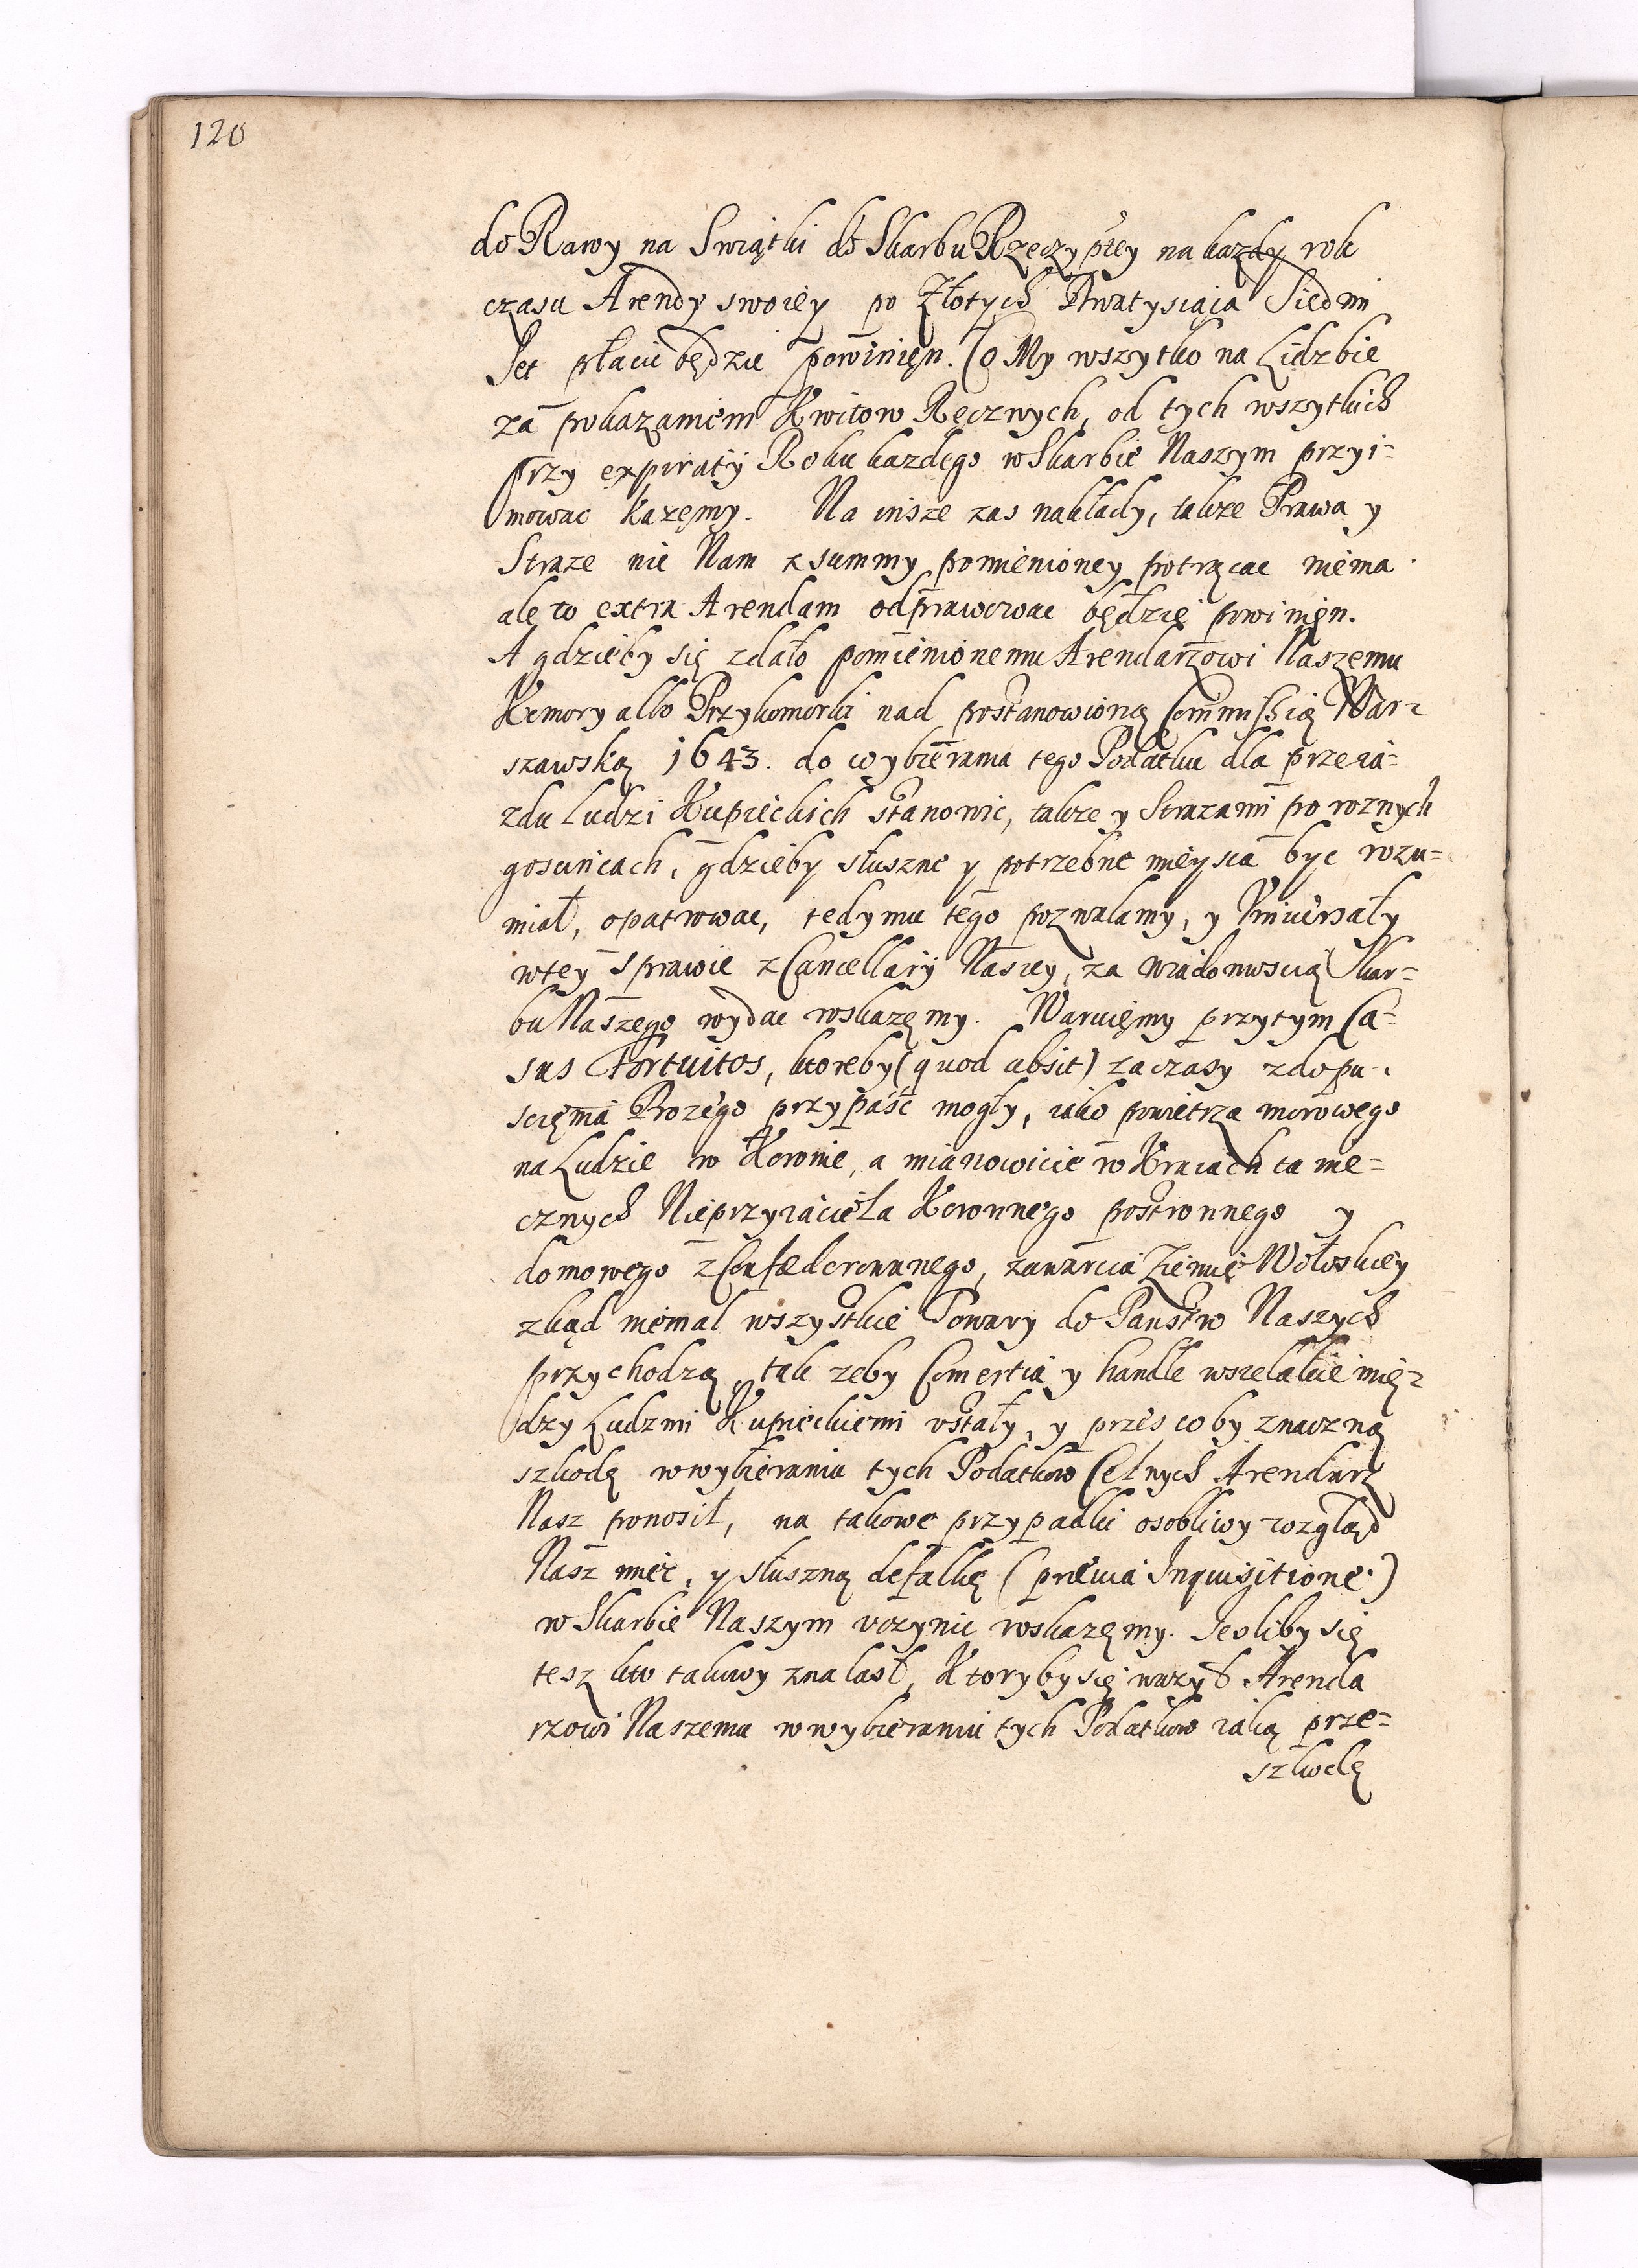 120
do Rawy na Swiątki do Skarbu Rzeczyptey na kazdy rok
czasu Arendy swoiey po Złotych Dwatysiąca Siedm
Set płacic będzie powinięn. Co My wszytko na Lidzbie
za pokazaniem Kwitow Ręcznych, od tych wszytkich
przy expiratÿ Roku kazdego w Skarbie Naszym przyi=
mowac kazęmy. Na insze zas nakłady, takze Prawa y
Straze nic Nam z summy pomienioney potrącac niema
ale to extra Arendam odprawowac będzię powinięn.
A gdzieby się zdało pomienionemu Arendarzowi Naszemu
Komory albo Przykomorki nad postanowioną Commissią War=
szawską 1643. do wybierania tego Podatku dla przeia=
zdu Ludzi Kupieckich stanowic, takze y Strazami po roznych
goscincach, gdzieby słuszne y potrzebne mieysca byc rozu=
miał, opatrowac, tedy mu tego pozwalamy, y Vniversały
wtey sprawie z Cancellarÿ Naszey, za wiadomoscią Skar=
bu Naszego wydac wskazęmy. Waruięmy przytym Ca=
sus Fortuitos, ktoreby (quod absit) zaczasy zdopu=
scięnia Bozego przypaść mogły, iako powietrza morowego
na Ludzie w Koronie, a mianowicie w Kraiach tame=
cznych Nieprzyiaciela Koronnego postronnego y
domowego z Confœderowanego, zawarcia Ziemię Wołoskiey
zkąd niemal wszystkie Towary do Państw Naszych
przychodzą, tak zeby Comertia y handle wszelakie mię=
dzy Ludzmi Kupieckiemi vstały, y przes coby znaczną
szkodę w wybieraniu tych Podatkow Celnych Arendarz
Nasz ponosił, na takowe przypadki osobliwy rozgląd
Nasz miec, y słuszną defalkę (prævia Inquisitione)
w Skarbie Naszym vczynic wskazęmy. Jesliby się
tesz kto takowy znalasł, Ktoryby się wazył Arenda
rzowi Naszemu w wybieraniu tych Podatkow iaką prze=
szkodę